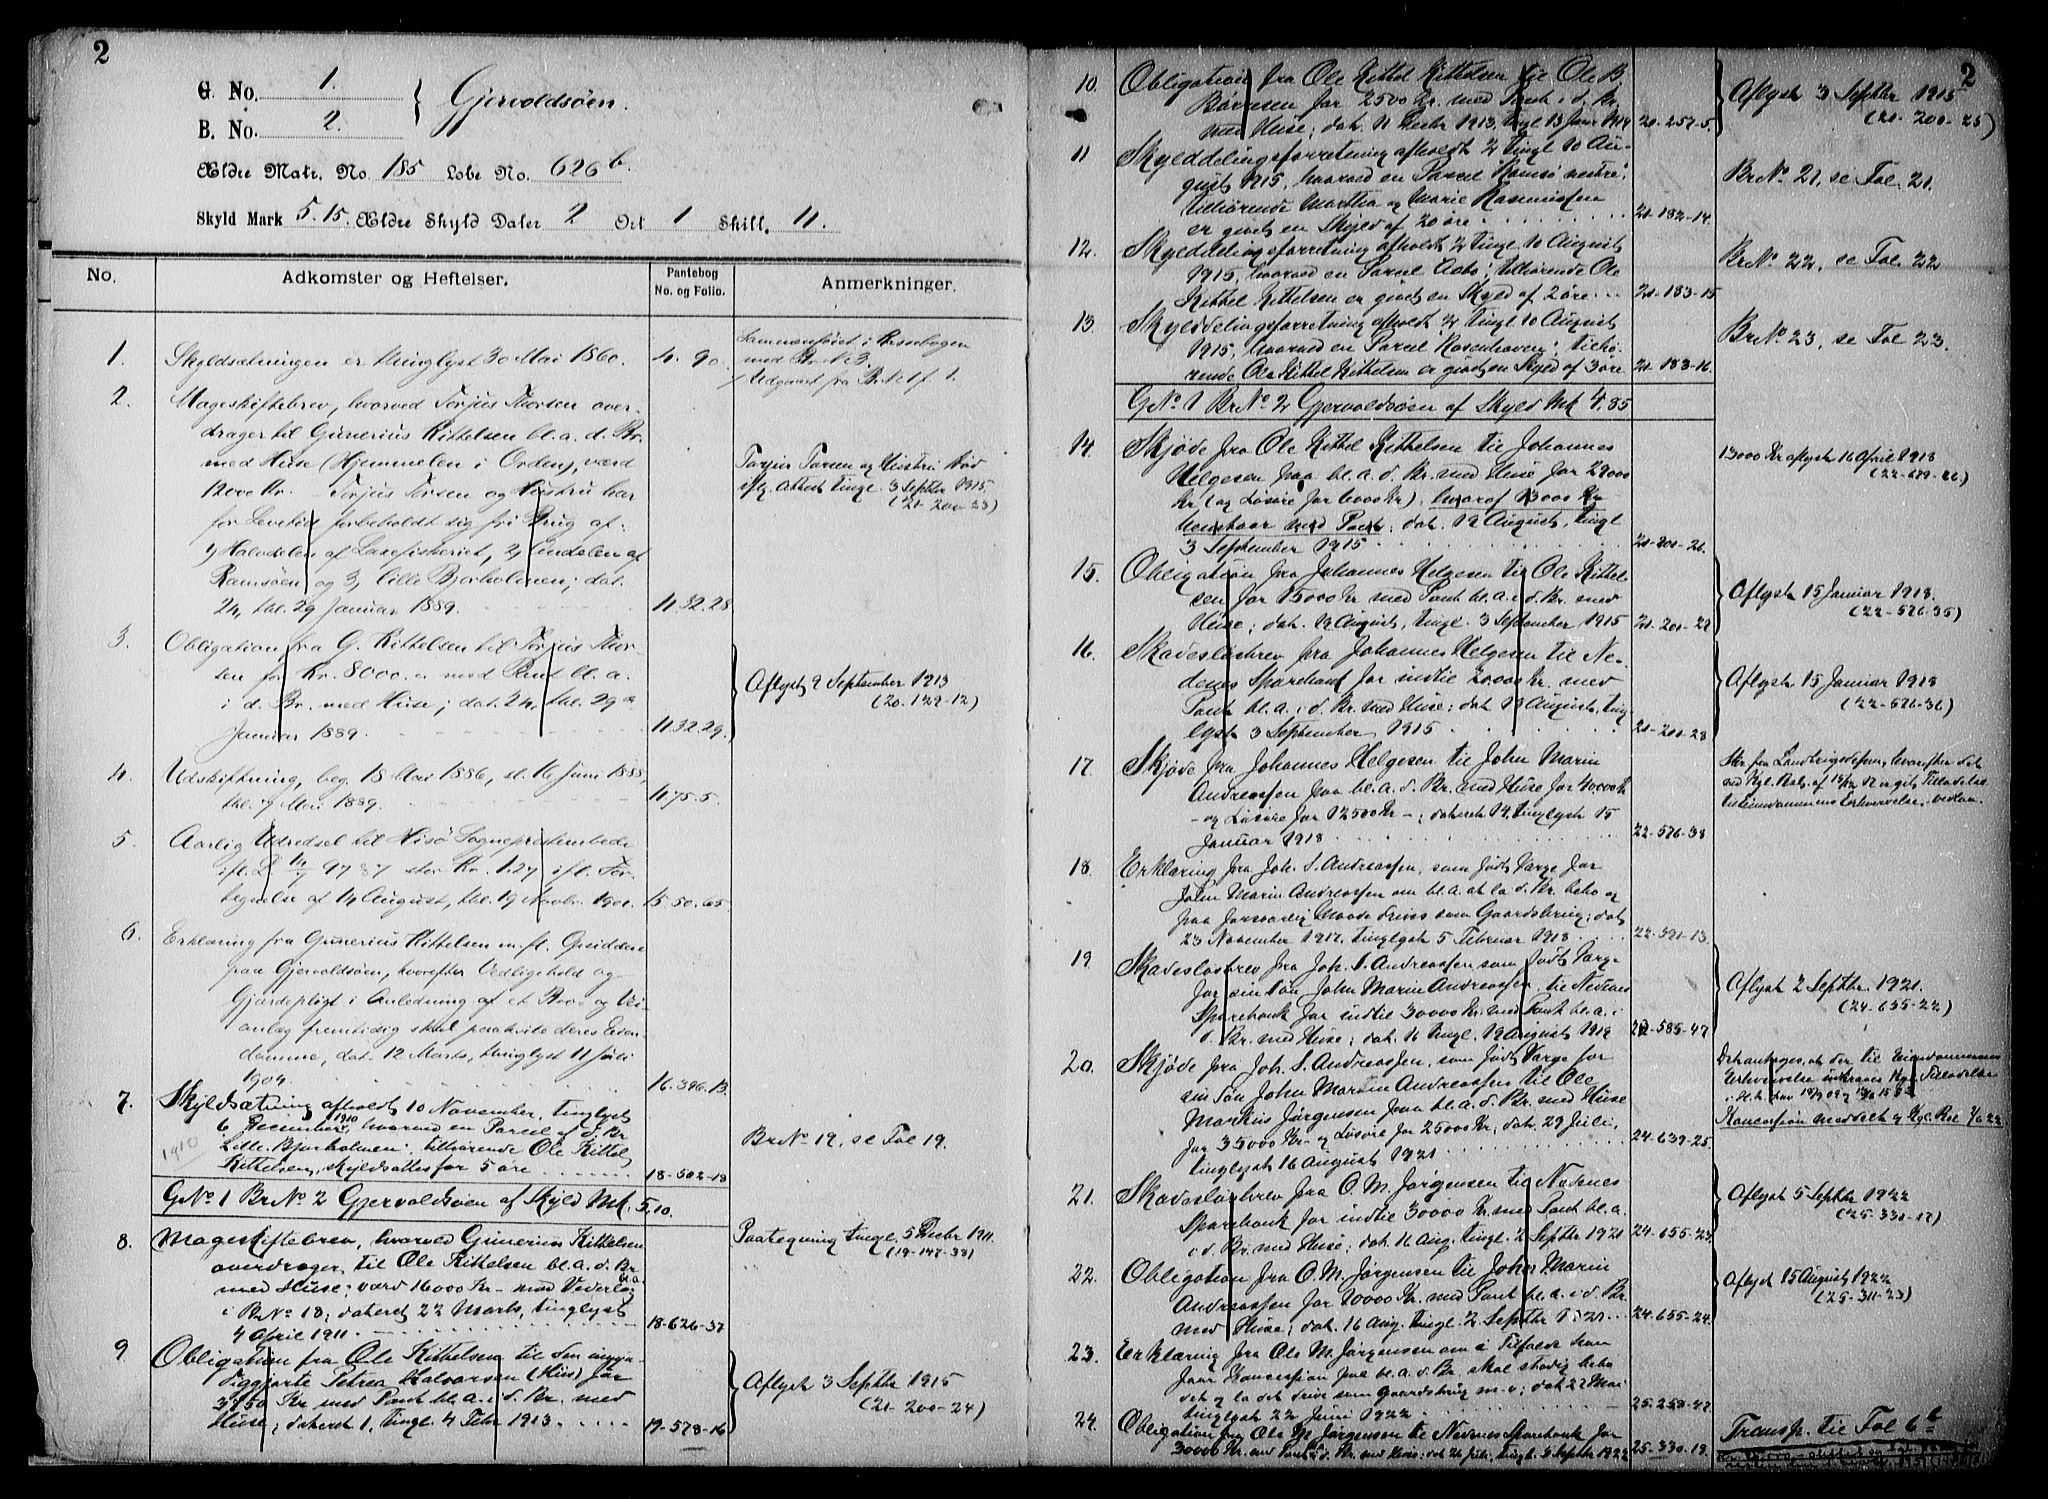 2
G. No. 1.
B. No. 2.
} Gjervoldsøen.
Ældre Matr. No. 185 Løbe No. 626 b.
Skyld Mark 5.15. Ældre Skyld Daler 2 Ort 1 Skill. 11.
No. Adkomster og Heftelser. Pantebog No. og Folio. Anmerkninger.
1. Skyldsætningen er thinglyst 30 Mai 1860. 4. 90.
Sammenføiet i
med Br. No 3.
Udgaaet fra Br. No 1 f. 1.
2. Mageskiftebrev, hvorved Torjus Thorsen over-
drager til Gunerius Kittelsen bl. a. d. Br.
med Huse (Hjemmelen i Orden), værd
12000 Kr. - Torjus Torsen og Hustru har
for Levetid forbeholdt sig fri Brug af:
1, Halvdelen af Laxefiskeriet, 2, Endelen af
Ramsøen og 3, lille Bjorholmen; dat.
24, thl. 29 Januar 1889. 11. 32. 28.
Torjus Torsen og Hustru død
iflg. Attest tingl. 3 Septbr 1915.
(21-200-23)
3. Obligation fra G. Kittelsen til Torjus Thor-
sen for Kr. 8000.- med Pant bl. a.
i d. Br. med Huse; dat. 24, thl. 29
Januar 1889. 11. 32. 29.
Aflyst 9 September 1913
(20-129-12)
4. Udskiftning, beg. 18 Mai 1886, sl. 16 Juni 1888,
thl. 7 Mai 1889. 11. 75. 5.
5. Aarlig Udredsel til Hisø Sogneprestembede
ifl. 97 87 stor Kr. 1.27 ifl. For-
tegnelse af 14 August, thl. 19 Novbr. 1901. 15. 50. 65.
6. Erklæring fra Gunerius Kittelsen m. fl. Opsiddere
paa Gjervoldsøen, hvorefter Vedligehold og
Gjærdepligt i Anledning af et Bro- og Vei-
anlæg fremtidig skal paahvile deres Eien-
domme, dat. 12 Marts, thinglyst 11 Juli
1904. 16. 396. 13.
7. Skyldsætning afholdt 10 November, tinglyst
6 December 1910, hvorved en Parcel af d. Br.
1910
"Lille Bjorholmen", tilhørende Ole Kittel
Kittelsen, skyldsattes for 5 øre 18-502-18
Br No 19, se Fol 19.
G No 1 Br No 2 Gjervoldsøen af Skyld Mk. 5,10.
8. Mageskiftebrev, hvorved Gunerius Kittelsen
overdrager til Ole Kittelsen bl. a. d. Br
med Huse; værd 16000 Kr - mod Vederlag bl. a.
i Br No 18; dateret 22 Marts, tinglyst
4 April 1911. 18-626-37
Paategning tingl. 5 Decbr 1911.
(19-148-38)
9. Obligation fra Ole Kittelsen til
diggjorte Petrea Halvorsen (Hisø) for
3750 Kr med Pant bl. a. i d. Br. med
Huse; dateret 1, tingl. 4 Febr 1913. 19-578-16
Aflyst 3 Septbr 1915
(21-200-24)
2
10. Obligation fra Ole Kittel Kittelsen til Ole B.
Børresen for 2500 Kr. med Pant i d. Br.
med Huse; dat. 11 Decbr 1913, tingl 13 Janr 1914 20-257-5.
Aflyst 3 Septbr 1915
(21-200-25)
11 Skylddelingsforretning afholdt 2, tingl 10 Au-
gust 1915, hvorved en Parcel "Ramsø vestre",
tilhørende Martha og Marie Rasmussen
er givet en Skyld af 20 øre 21-182-14.
Br No 21, se Fol. 21.
12. Skylddelingsforretning afholdt 2, tingl. 10 August
1915, hvorved en Parcel "Aabo", tilhørende Ole
Kittel Kittelsen er givet en Skyld af 2 øre 21-183-15
Br No 22, se Fol. 22
13. Skylddelingsforretning afholdt 2, tingl 10 August
1915, hvorved en Parcel "Rosenhaven", tilhø-
rende Ole Kittel Kittelsen er givet en Skyld af 3 øre 21-183-16.
Br No 23, se Fol 23.
G No 1 Br No 2 Gjervoldsøen af Skyld Mk 4.85
14. Skjøde fra Ole Kittel Kittelsen til Johannes
Helgesen paa bl. a. d. Br. med Huse for 29000
Kr (og Løsøre for 6000 Kr), hvoraf 13000 Kr
henstaar med Pant; dat. 19 August, tingl
3 September 1915 21-201-26.
13000 Kr aflyst 16 April 1918
(22-679-26)
15. Obligation fra Johannes Helgesen til Ole Kittel-
sen for 15000 Kr med Pant bl. a. i d. Br. med
Huse; dat. 19 August, tingl. 3 September 1915 21-201-27
Aflyst 15 Januar 1918.
(22-576-35)
16. Skadesløsbrev fra Johannes Helgesen til Ne-
denes Sparebank for indtil 20000 Kr. med
Pant bl. a. i d. Br. med Huse; dat 19 August, ting-
lyst 3 September 1915 21-201-28
Aflyst 15 Januar 1918
(22-576-36)
17. Skjøde fra Johannes Helgesen til John Marin
Andreassen paa bl. a. d. Br. med Huse for 40000 Kr
- og Løsøre for 12500 Kr -; dateret 14, tinglyst 15
Januar 1918 22-576-38
Skr fra Landbrugsdepm., hvorefter det
ved Kgl. Resl. af er git Tilladelse
Erhvervelse vedtan.
18. Erklæring fra Joh. S. Andreassen, som født Værge for
John Marin Andreassen om bl. a. at la d. Br bebo og
paa forsvarlig Maade drives som Gaardsbrug; dat
23 November 1917, tinglyst 5 Februar 1918 22-591-13.
19 Skadesløsbrev fra Joh. S. Andreassen, som født Værge
for sin Søn John Marin Andreassen til Nedenes
Sparebank for indtil 30000 Kr. med Pant bl. a. i
d. Br. med Huse; dat. 16, tingl. 19 August 1919 22-585-47
Aflyst 2 Septbr. 1921.
(24-655-22)
20. Skjøde fra Joh. S. Andreassen, som født Værge for
sin Søn John Marin Andreassen til Ole
Markus Jørgensen paa bl. a. d. Br. med Huse
for 35000 Kr - og Løsøre for 25000 Kr; dat. 29 Juli,
tinglyst 16 August 1921 24-639-25.
Det antages, at der til Eiendommens
Erhvervelse utkræves Kgl. Tilladelse
Koncession meddelt v. Kgl. Res 2/6 22.
21. Skadesløsbrev fra O. M. Jørgensen til Nedenes
Sparebank for indtil 30000 Kr. med Pant bl. a.
i d. Br. med Huse; dat. 16 Aug. tingl. 2 Septbr 1921 24-655-23.
Aflyst 5 Septbr 1922
(25-330-17)
22. Obligation fra O. M. Jørgensen til John Marin
Andreassen for 10000 Kr. med Pant bl. a. i d. Br.
med Huse; dat. 16 Aug. tingl. 2 Septbr 1921 24-655-24.
Aflyst 15 August 1922
(25-311-23)
23. Erklæring fra Ole M. Jørgensen om i Tilfælde han
faar Koncession paa bl. a. d. Br. skal stadig bebo
det og la det drive som Gaardsbrug m. v; dat 27 Mai
tinglyst 22 Juni 1922 25-253-47
24. Obligation fra Ole M. Jørgensen til Nedenes Sparebank for
30000 Kr. med Pant bl. a. i d. Br. med Huse; dat 26 Juli, tingl. 5 Septbr 1922 25-330-18.
Transp. til Fol 6 b